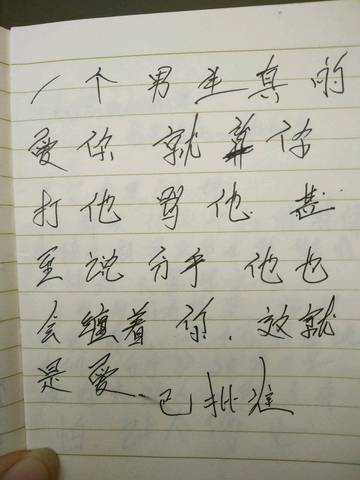 一个男生真的
爱你 就算你
打他 骂他 甚
至说分手 他也
会缠着 你.这就
是爱.
已批准